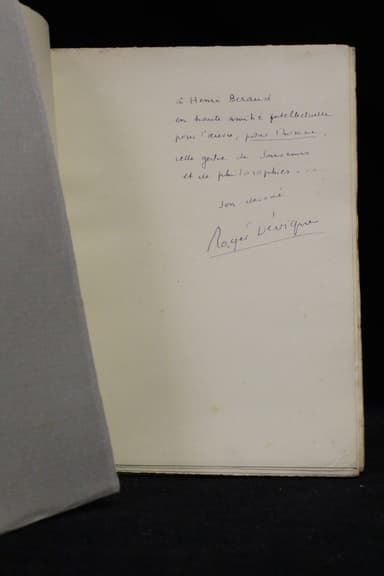 à Henri Beraud
en haute amitié intellectuelle
pour l'œuvre, pour l'homme,
cette gerbe de Souvenirs
et de philosophies. . . .
Son dévoué
Roger Dévigne